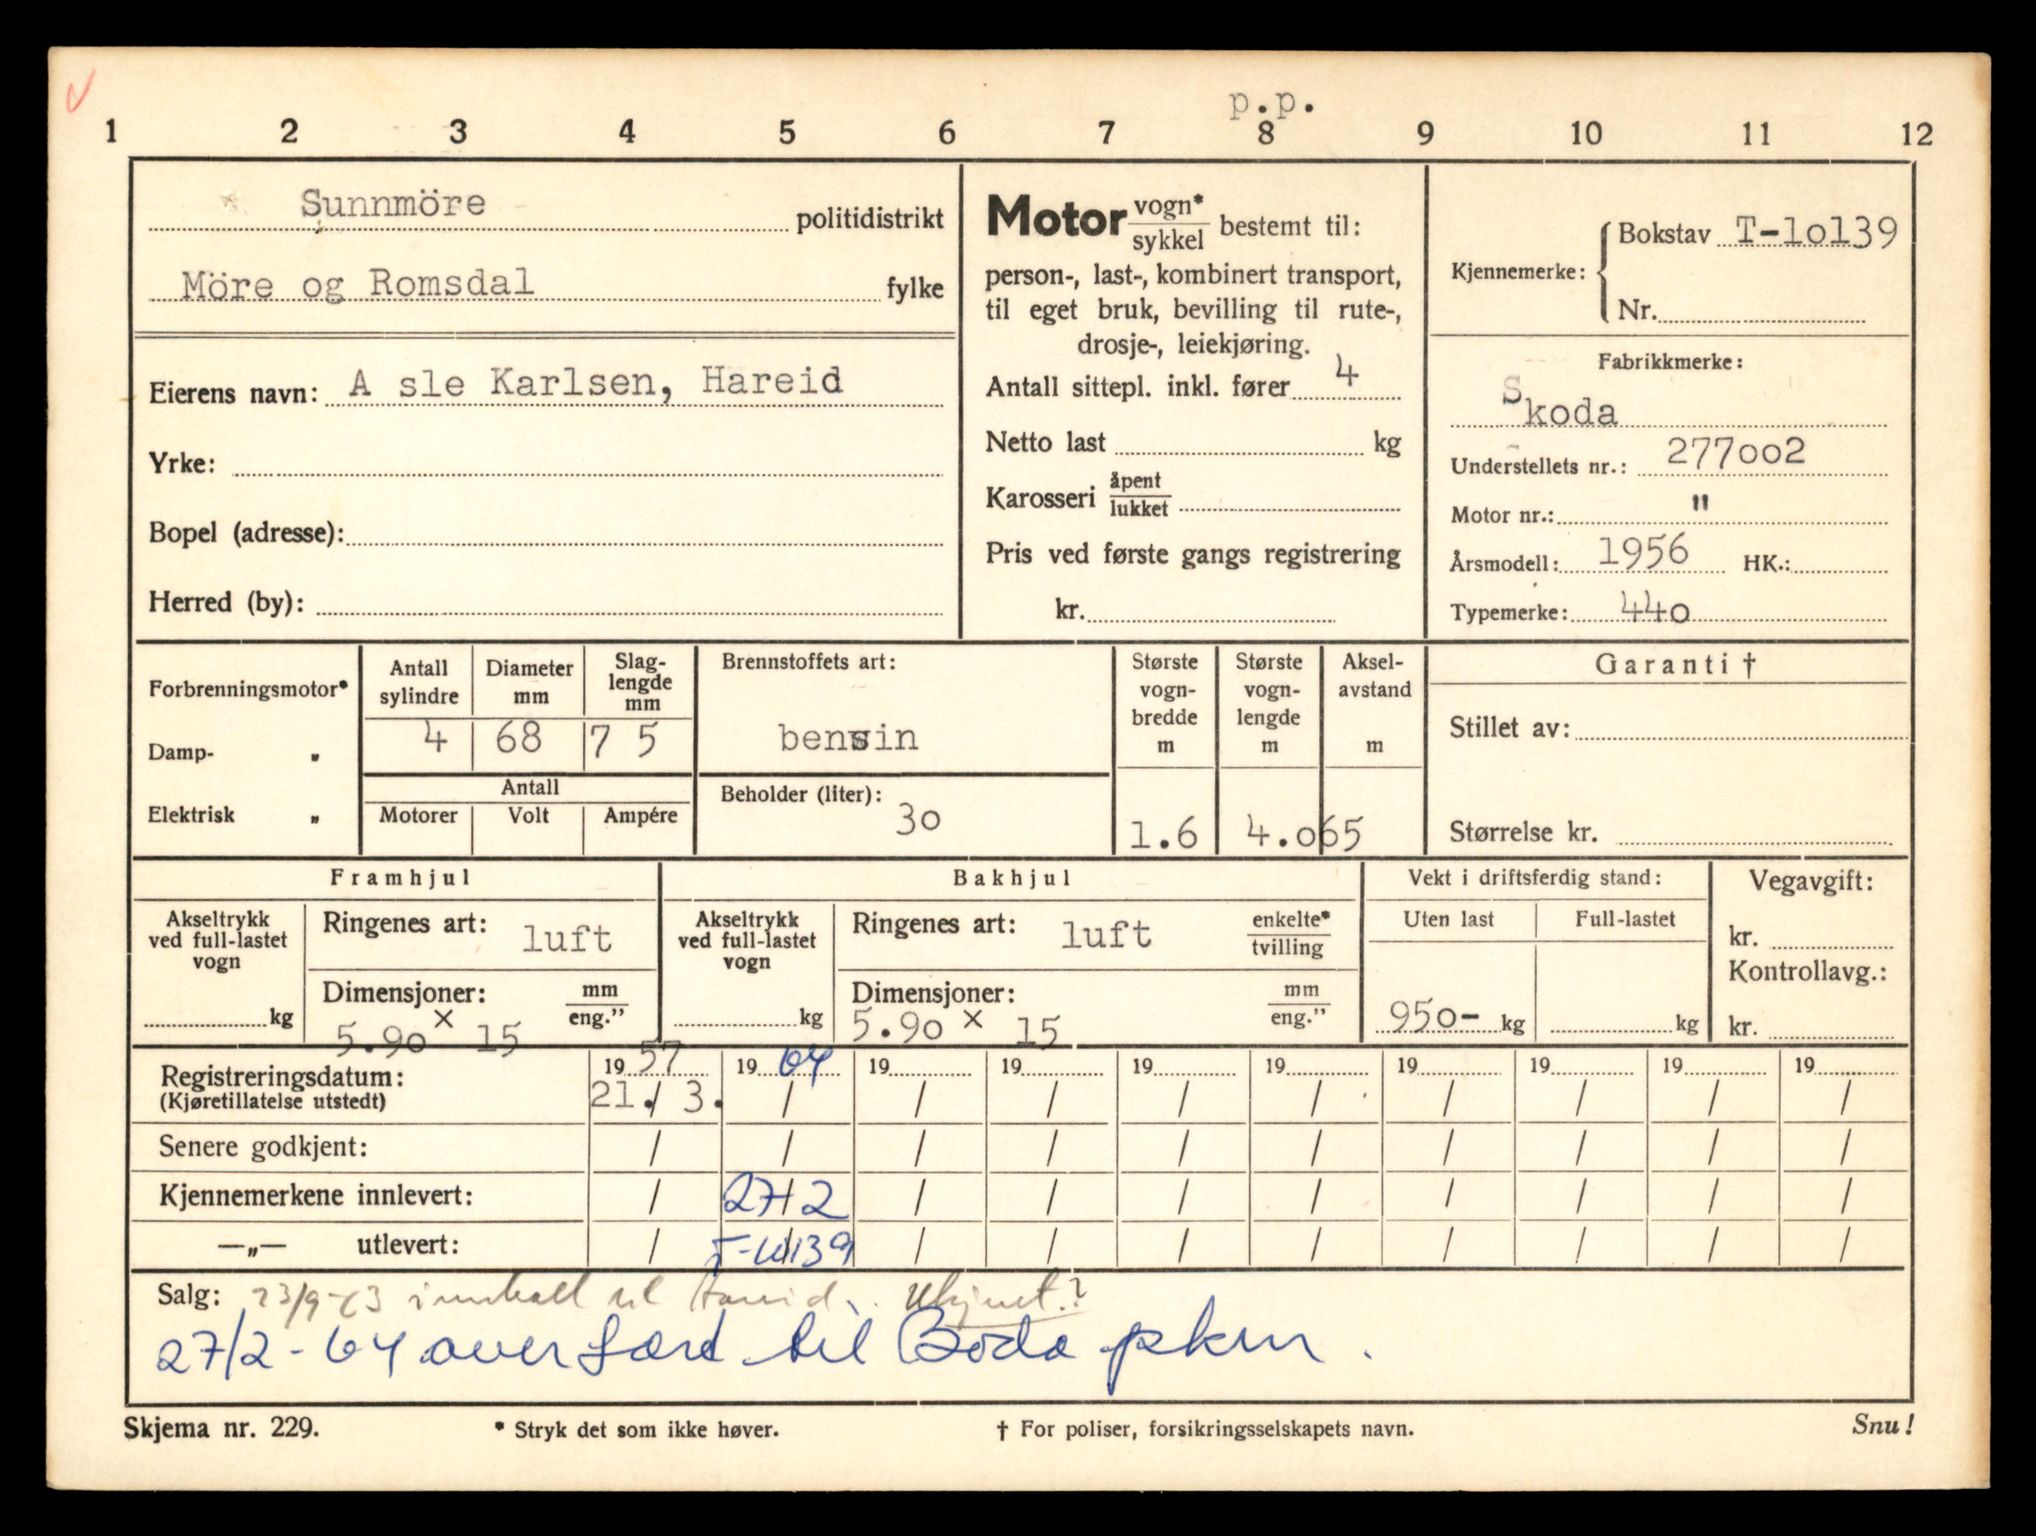 p.p.
1 2 3 4 5 6 7 8 9 10 11 12
Sunnmöre politidistrikt
Möre og Romsdal fylke
Eierens navn: A sle Karlsen, Hareid
Yrke:
Bopel (adresse):
Herred (by):
Motor vogn*/sykkel bestemt til:
person-, last-, kombinert transport,
til eget bruk, bevilling til rute-,
drosje-, leiekjøring.
Antall sittepl. inkl. fører 4
Netto last kg
Karosseri åpent/lukket
Pris ved første gangs registrering
kr.
Kjennemerke: Bokstav T-lol39
Nr.
Fabrikkmerke:
Skoda
Understellets nr.: 277oo2
Motor nr.: "
Årsmodell: 1956 HK.:
Typemerke: 44o
Forbrenningsmotor*
Damp- „
Elektrisk „
Antall sylindre Diameter mm Slag-lengde mm
4 68 7 5
Antall
Motorer Volt Ampére
Brennstoffets art:
bensin
Beholder (liter):
3o
Største vogn-bredde m Største vogn-lengde m Aksel-avstand m
1.6 4.o65
Garanti †
Stillet av:
Størrelse kr.
Framhjul
Akseltrykk ved full-lastet vogn
kg
Ringenes art: luft
Dimensjoner: mm/eng.”
5.9o x 15
Bakhjul
Akseltrykk ved full-lastet vogn
kg
Ringenes art: luft enkelte*/tvilling
Dimensjoner: mm/eng.”
5.9o x 15
Vekt i driftsferdig stand:
Uten last Full-lastet
95o- kg kg
Vegavgift:
kr.
Kontrollavg.:
kr.
19 57 19 64 19 19 19 19 19 19 19 19
Registreringsdatum: 21./ 3. / / / / / / / / /
(Kjøretillatelse utstedt)
Senere godkjent: / / / / / / / / / /
Kjennemerkene innlevert: / 27/2 / / / / / / / /
—„— utlevert: / T-10139 / / / / / / / /
Salg: 23/9-63 til
27/2-64 overført til Bodø pkm.
Skjema nr. 229. * Stryk det som ikke høver. † For poliser, forsikringsselskapets navn. Snu!